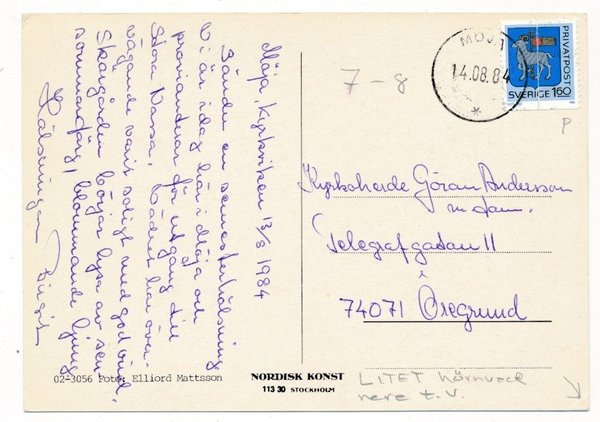 Möja, Kyrkviken 13/8 1984
Sänder en semesterhälsning
Vi är idag här i Möja och
provianterar för utgång till
Stora Nassa. Vädret har över-
vägande varit soligt med god vind.
Skärgården börjar lysa av sen-
sommarfärg, blommande ljung
Hälsningar Birgit
7-8
MÖJA
14.08.84
PRIVATPOST
SVERIGE 160
P
Kyrkoherde Göran Andersson
m. fam.
Telegrafgatan 11
74071 Öregrund
02-3056 Foto: Elliord Mattsson
NORDISK KONST
113 30 STOCKHOLM
LITET hörnveck
nere t.v.